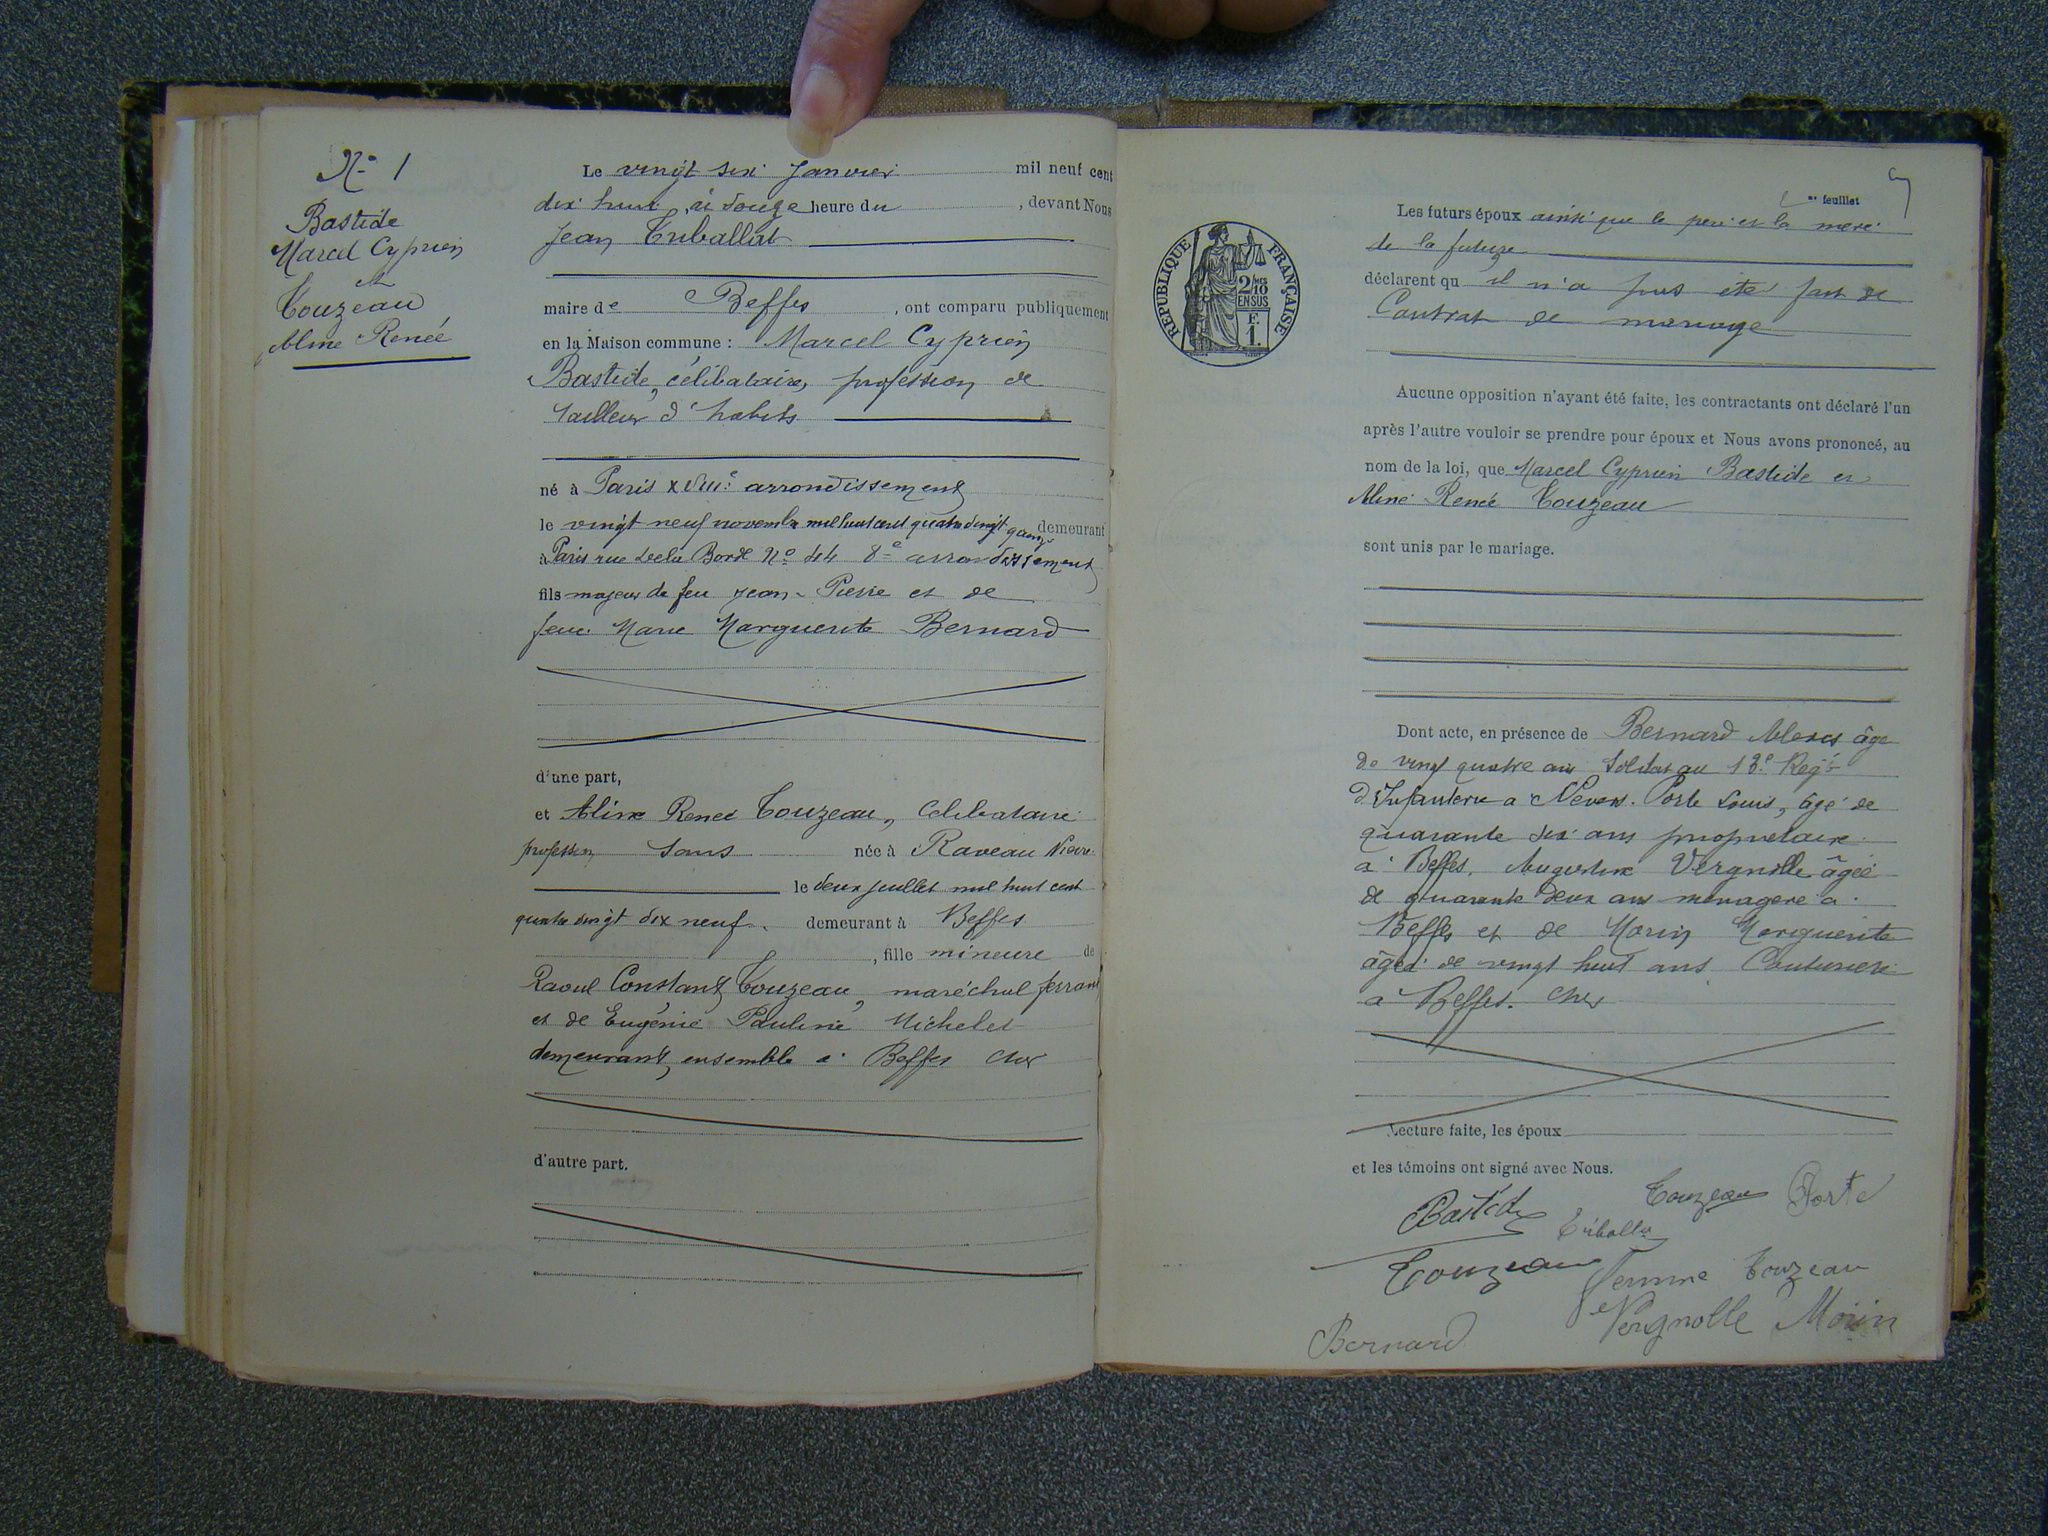 N° 1
Bastide
Marcel Cyprien
et
Touzeau
Aline Renée
Le vingt six Janvier mil neuf cent
dix huit, à douze heure du , devant Nous
Jean Triballat
maire de Beffes , ont comparu publiquement
en la Maison commune : Marcel Cyprien
Bastide, célibataire, profession de
tailleur d'habits
né à Paris XVIII.e arrondissement
le vingt neuf novembre mil huit cent quatre vingt quinze demeurant
à Paris rue de la Borde N° 44 8e arrondissement
fils majeur de feu Jean-Pierre et de
feue Marie Marguerite Bernard
d'une part,
et Aline Renée Touzeau, célibataire
profession sans née à Raveau Nièvre
le deux juillet mil huit cent
quatre vingt dix neuf demeurant à Beffes
, fille mineure de
Raoul Constant Touzeau, maréchal ferrant
et de Eugénie Pauline Michelet
demeurant ensemble à Beffes Cher
d'autre part.
RÉPUBLIQUE FRANÇAISE
2/10
EN SUS
F.
1.
me feuillet
Les futurs époux ainsi que le père et la mère
de la future
déclarent qu'il n'a pas été fait de
Contrat de mariage
Aucune opposition n'ayant été faite, les contractants ont déclaré l'un
après l'autre vouloir se prendre pour époux et Nous avons prononcé, au
nom de la loi, que Marcel Cyprien Bastide et
Aline Renée Touzeau
sont unis par le mariage.
Dont acte, en présence de Bernard Alexis âgé
de vingt quatre ans Soldat au 13e Regt
d'Infanterie à Nevers. Porte Louis, âgé de
quarante six ans propriétaire
à Beffes. Augustine Vergnolle âgée
de quarante deux ans ménagère à
Beffes et de Morin Marguerite
âgée de vingt huit ans Couturière
à Beffes. Cher
Lecture faite, les époux
et les témoins ont signé avec Nous.
Bastide Touzeau Porte
Triballat
Touzeau femme Touzeau
Vergnolle Morin
Bernard